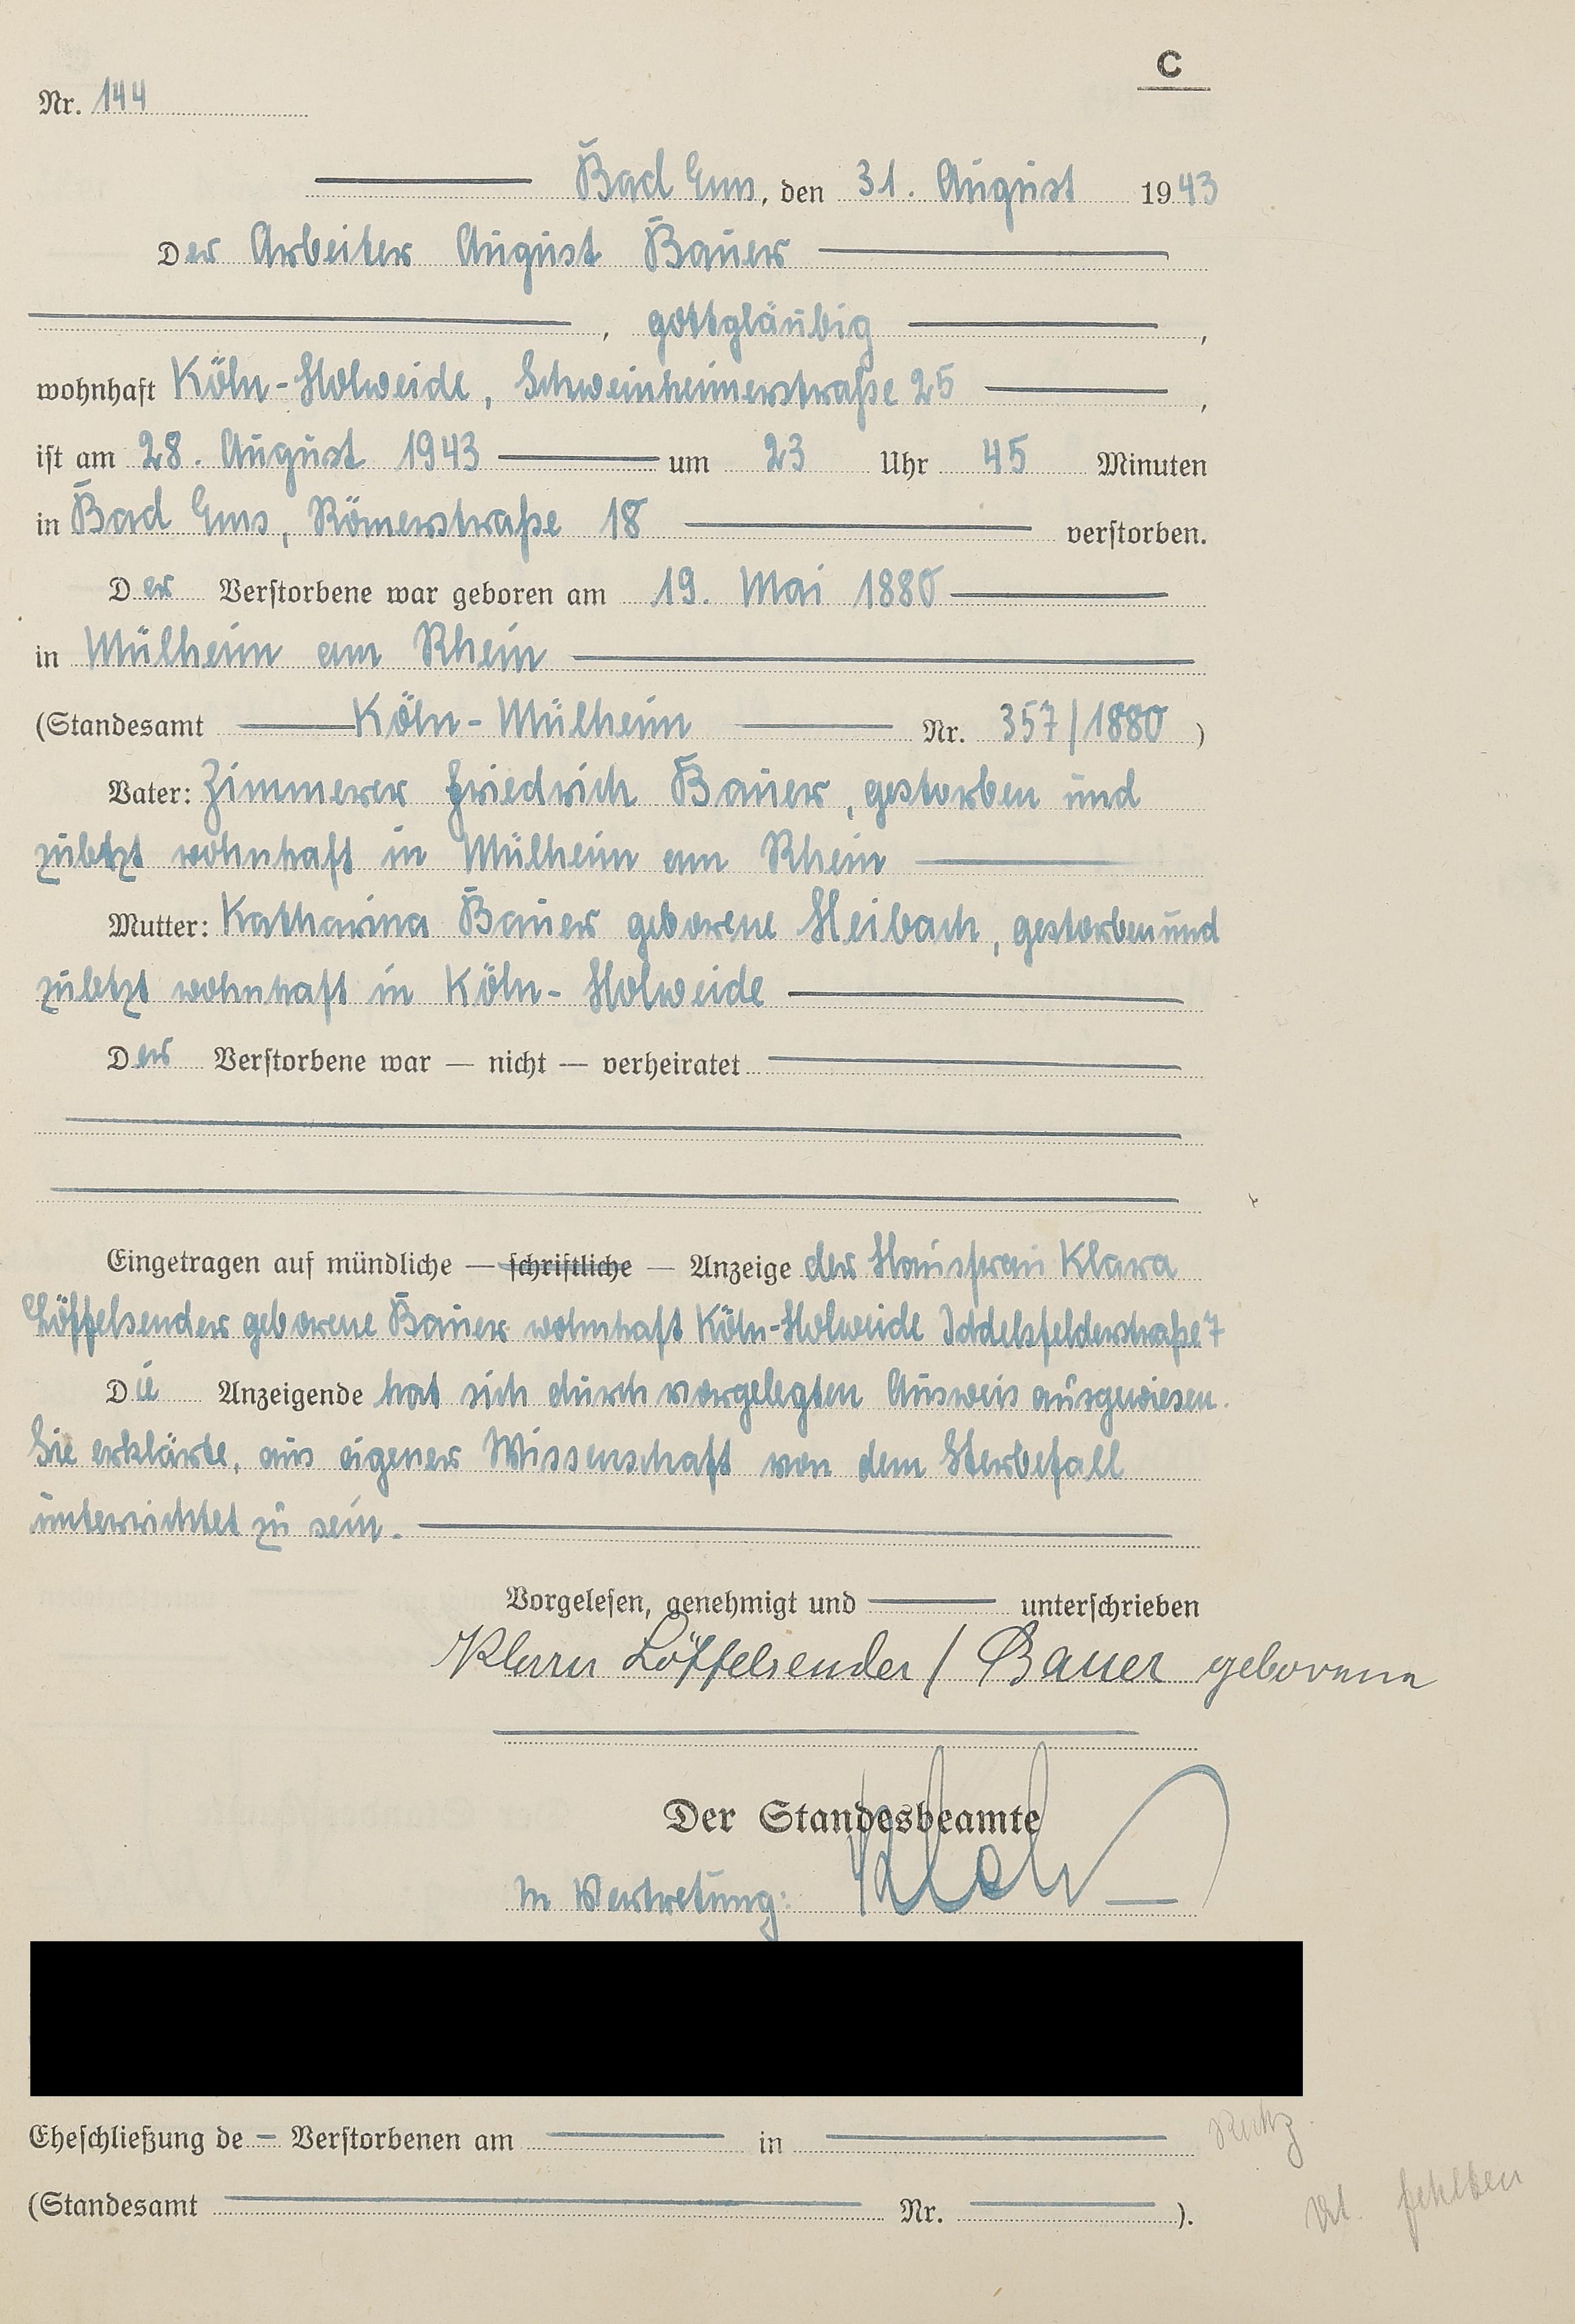 C
Nr. 144
Bad Ems, den 31. August 1943
Der Arbeiter August Bauer
, gottgläubig ,
wohnhaft Köln-Holweide, Schweinheimerstraße 25 ,
ist am 28. August 1943 um 23 Uhr 45 Minuten
in Bad Ems, Römerstraße 18 verstorben.
Der Verstorbene war geboren am 19. Mai 1880
in Mülheim am Rhein
(Standesamt Köln-Mülheim Nr. 357/1880 )
Vater: Zimmerer Friedrich Bauer, gestorben und
zuletzt wohnhaft in Mülheim am Rhein
Mutter: Katharina Bauer geborene Heibach, gestorben und
zuletzt wohnhaft in Köln-Holweide
Der Verstorbene war — nicht — verheiratet
Eingetragen auf mündliche — schriftliche — Anzeige der Hausfrau Klara
Löffelsender geborene Bauer wohnhaft Köln-Holweide Iddelsfelderstraße 7
Die Anzeigende hat sich durch vorgelegten Ausweis ausgewiesen.
Sie erklärte, aus eigener Wissenschaft von dem Sterbefall
unterrichtet zu sein.
Vorgelesen, genehmigt und unterschrieben
Klara Löffelsender / Bauer geborene
Der Standesbeamte
In Vertretung:
Eheschließung de – Verstorbenen am in
(Standesamt Nr. ).
fehlten